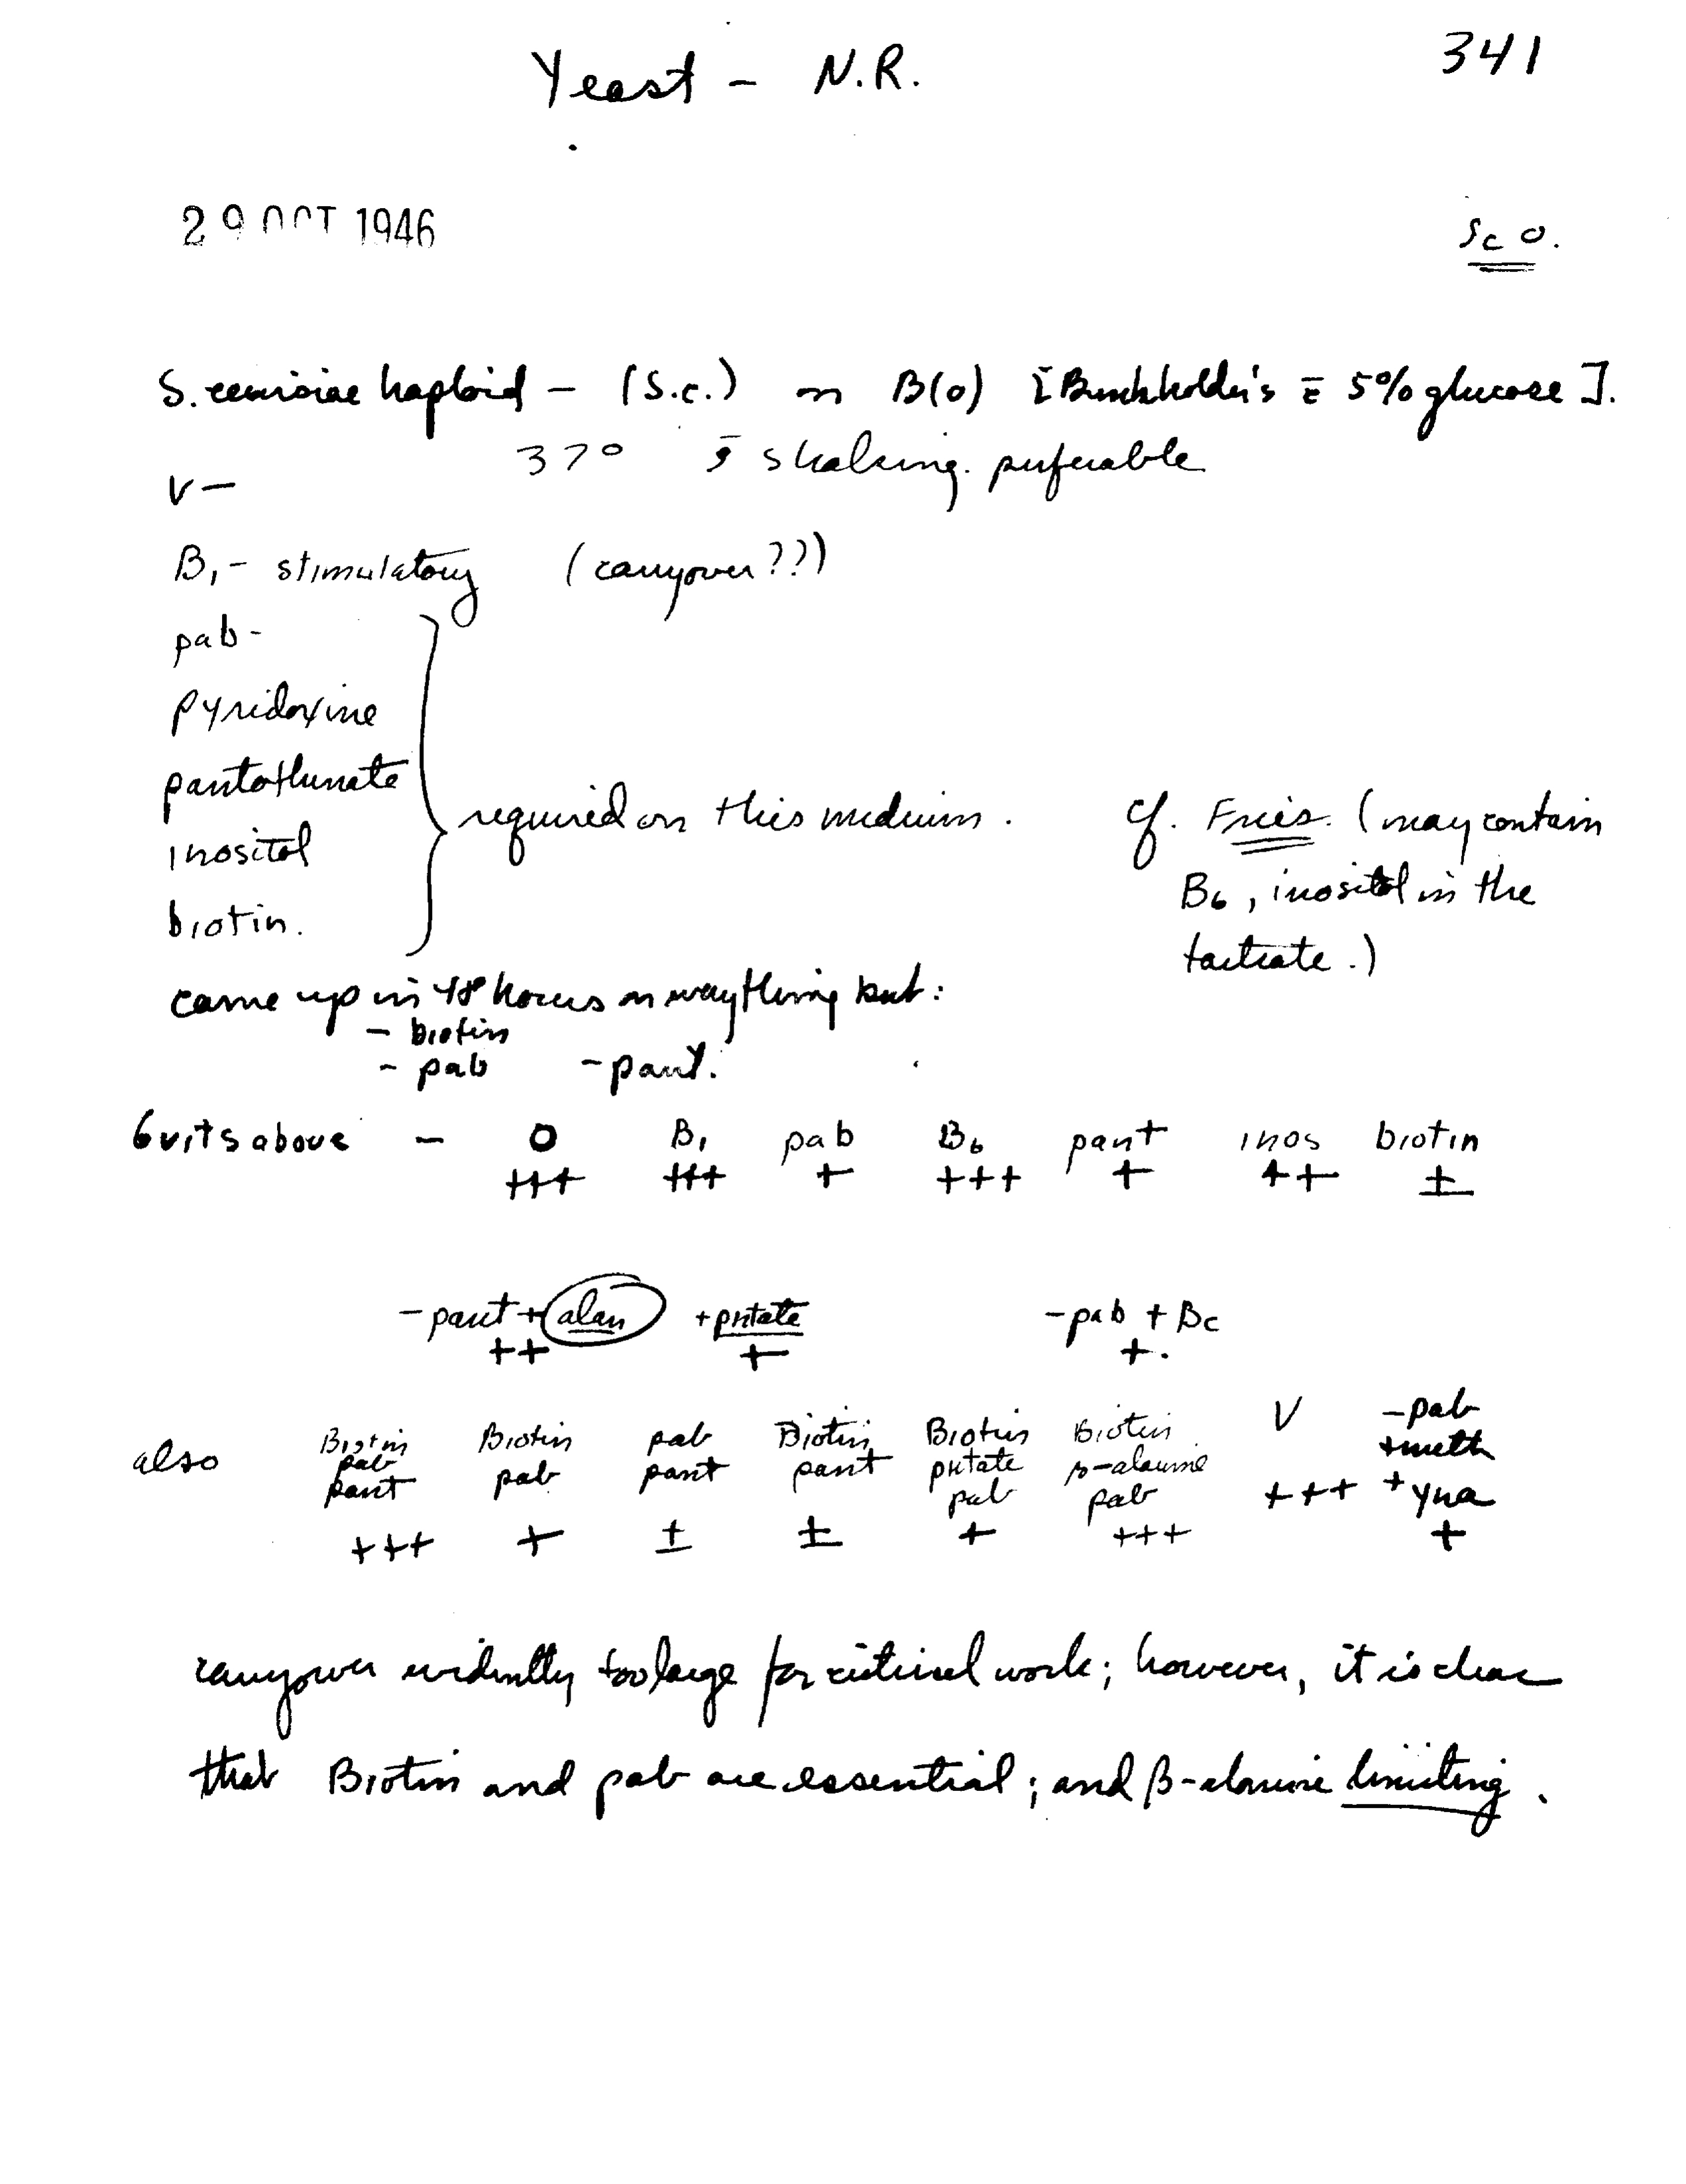 Yeast - N.R.
341
29 OCT 1946
Sc O.
S. cerevisiae haploid - (S.c.) on B(o) [Burkholder's c̄ 5% glucose].
37° s̄ shaking. preferable
V-
B1- stimulatory (carryover??)
pab-
pyridoxine
pantothenate
inositol
biotin.
required on this medium.
cf. Fries. (may contain
B6, inositol in the
tartrate.)
came up in 48 hours on everything but:
- biotin
- pab - pant.
6 vits above - O B1 pab B6 pant inos biotin
+++ +++ + +++ + ++ ±
- pant + alan + pntate - pab + Bc
++ + +.
also
Biotin pab pant +++
Biotin pab +
pab pant ±
Biotin pant ±
Biotin pntate pab +
Biotin β-alanine pab +++
V +++
- pab + meth + yna +
carryover evidently too large for critical work; however, it is clear
that Biotin and pab are essential; and β-alanine limiting.